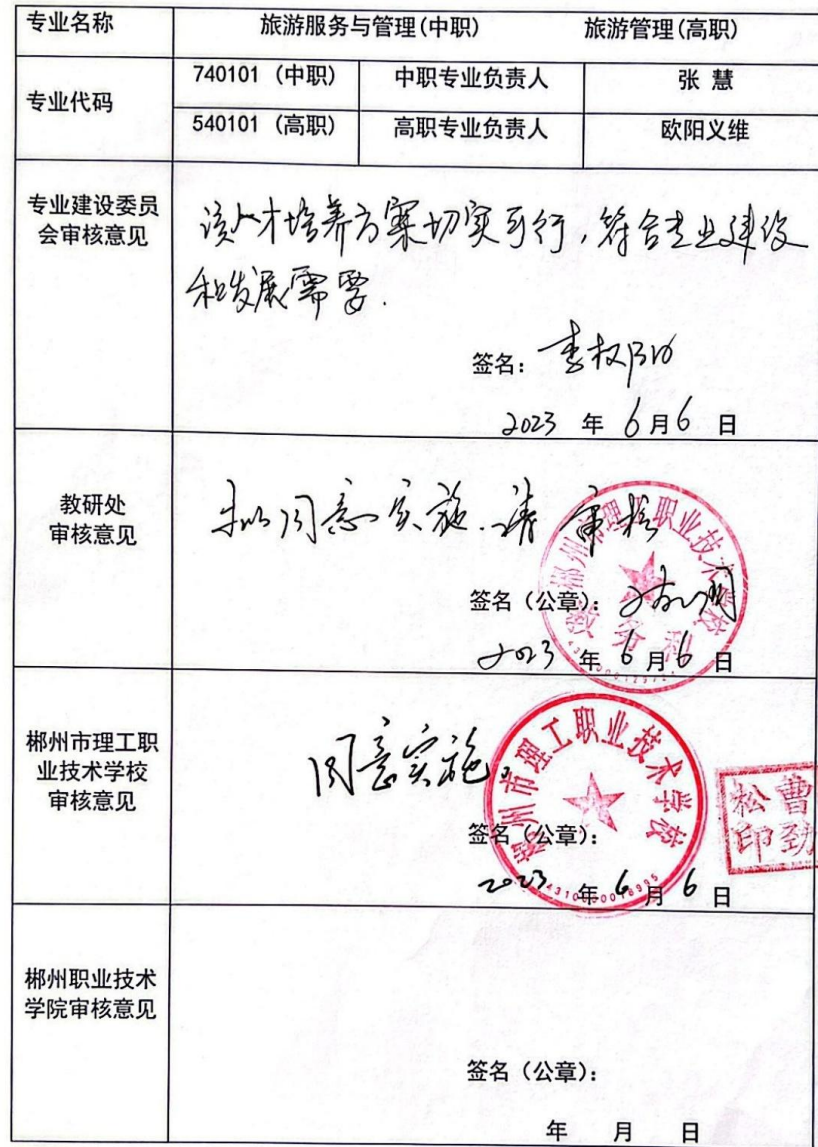 专业名称 旅游服务与管理(中职) 旅游管理(高职)
专业代码 740101 (中职) 中职专业负责人 张 慧
540101 (高职) 高职专业负责人 欧阳义维
专业建设委员
会审核意见
该人才培养方案切实可行,符合专业建设
和发展需要.
签名:
2023 年 6月6 日
教研处
审核意见
拟同意实施.请审核
郴州市理工职业技术学校
教务科
签名(公章):
2023 年 6 月 6 日
郴州市理工职
业技术学校
审核意见
同意实施.
郴州市理工职业技术学校
签名(公章):
曹劲
松印
2023 年 6 月 6 日
郴州职业技术
学院审核意见
签名(公章):
年 月 日